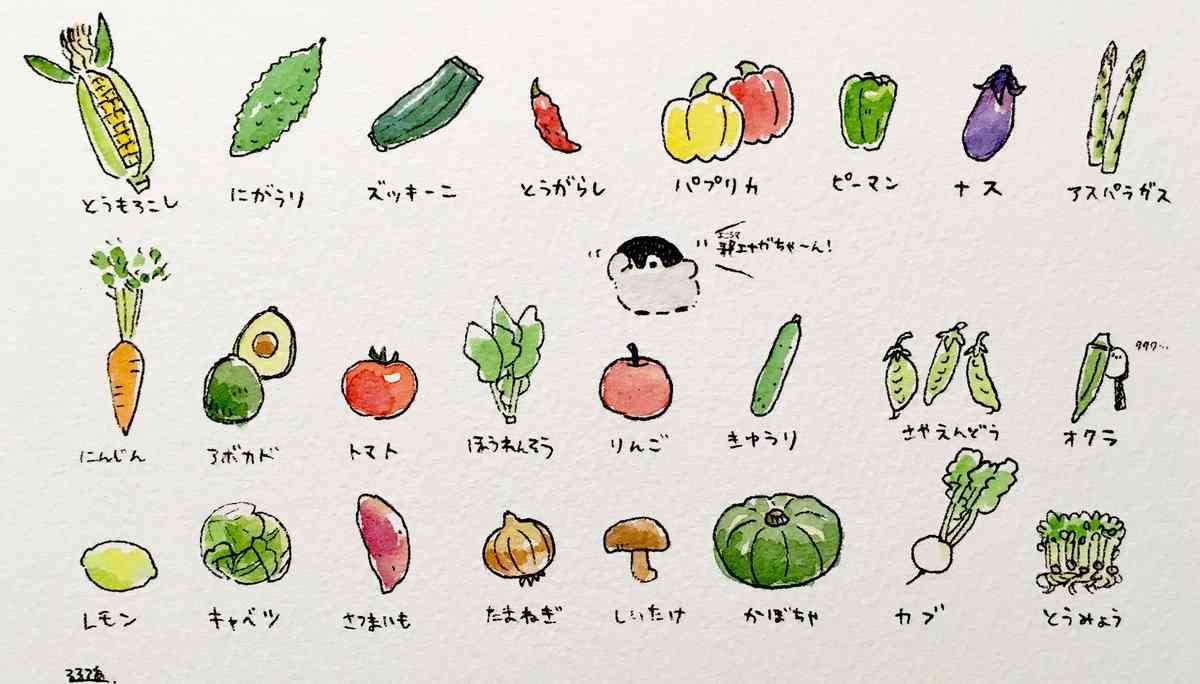 とうもろこし
にがうり
ズッキーニ
とうがらし
パプリカ
ピーマン
ナス
アスパラガス
エナガちゃ〜ん!
にんじん
アボカド
トマト
ほうれんそう
りんご
きゅうり
さやえんどう
オクラ
レモン
キャベツ
さつまいも
たまねぎ
しいたけ
かぼちゃ
カブ
とうみょう